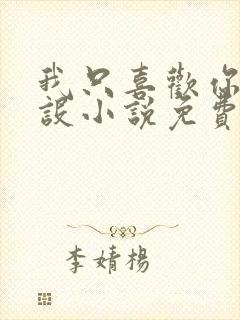 我只喜歡你
設小說免費
李婧楊